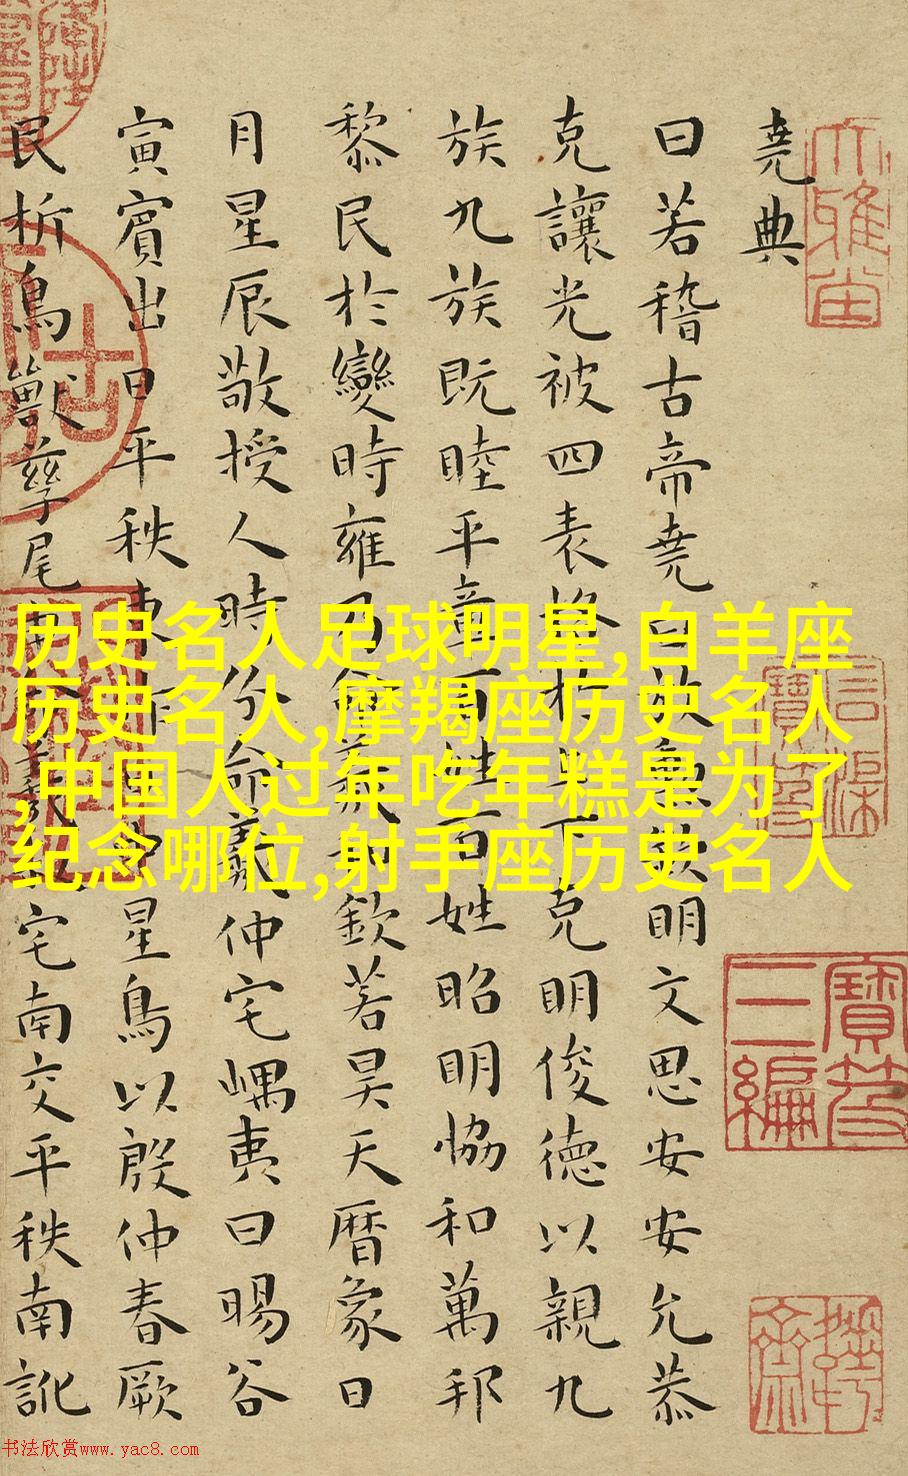 堯典
曰若稽古帝堯曰放勳欽明文思安安允恭
克讓光被四表格于上下克明俊德以親九
族九族既睦平章百姓百姓昭明協和萬邦
黎民於變時雍乃命羲和欽若昊天曆象日
月星辰敬授人時分命羲仲宅嵎夷曰暘谷
寅賓出日平秩東作日中星鳥以殷仲春厥
民析鳥獸孳尾申命羲叔宅南交平秩南訛
大雅
寶笈
三編
历史名人足球明星,白羊座
历史名人,摩羯座历史名人
,中国人过年吃年糕是为了
纪念哪位,射手座历史名人
书法欣赏www.yac8.com